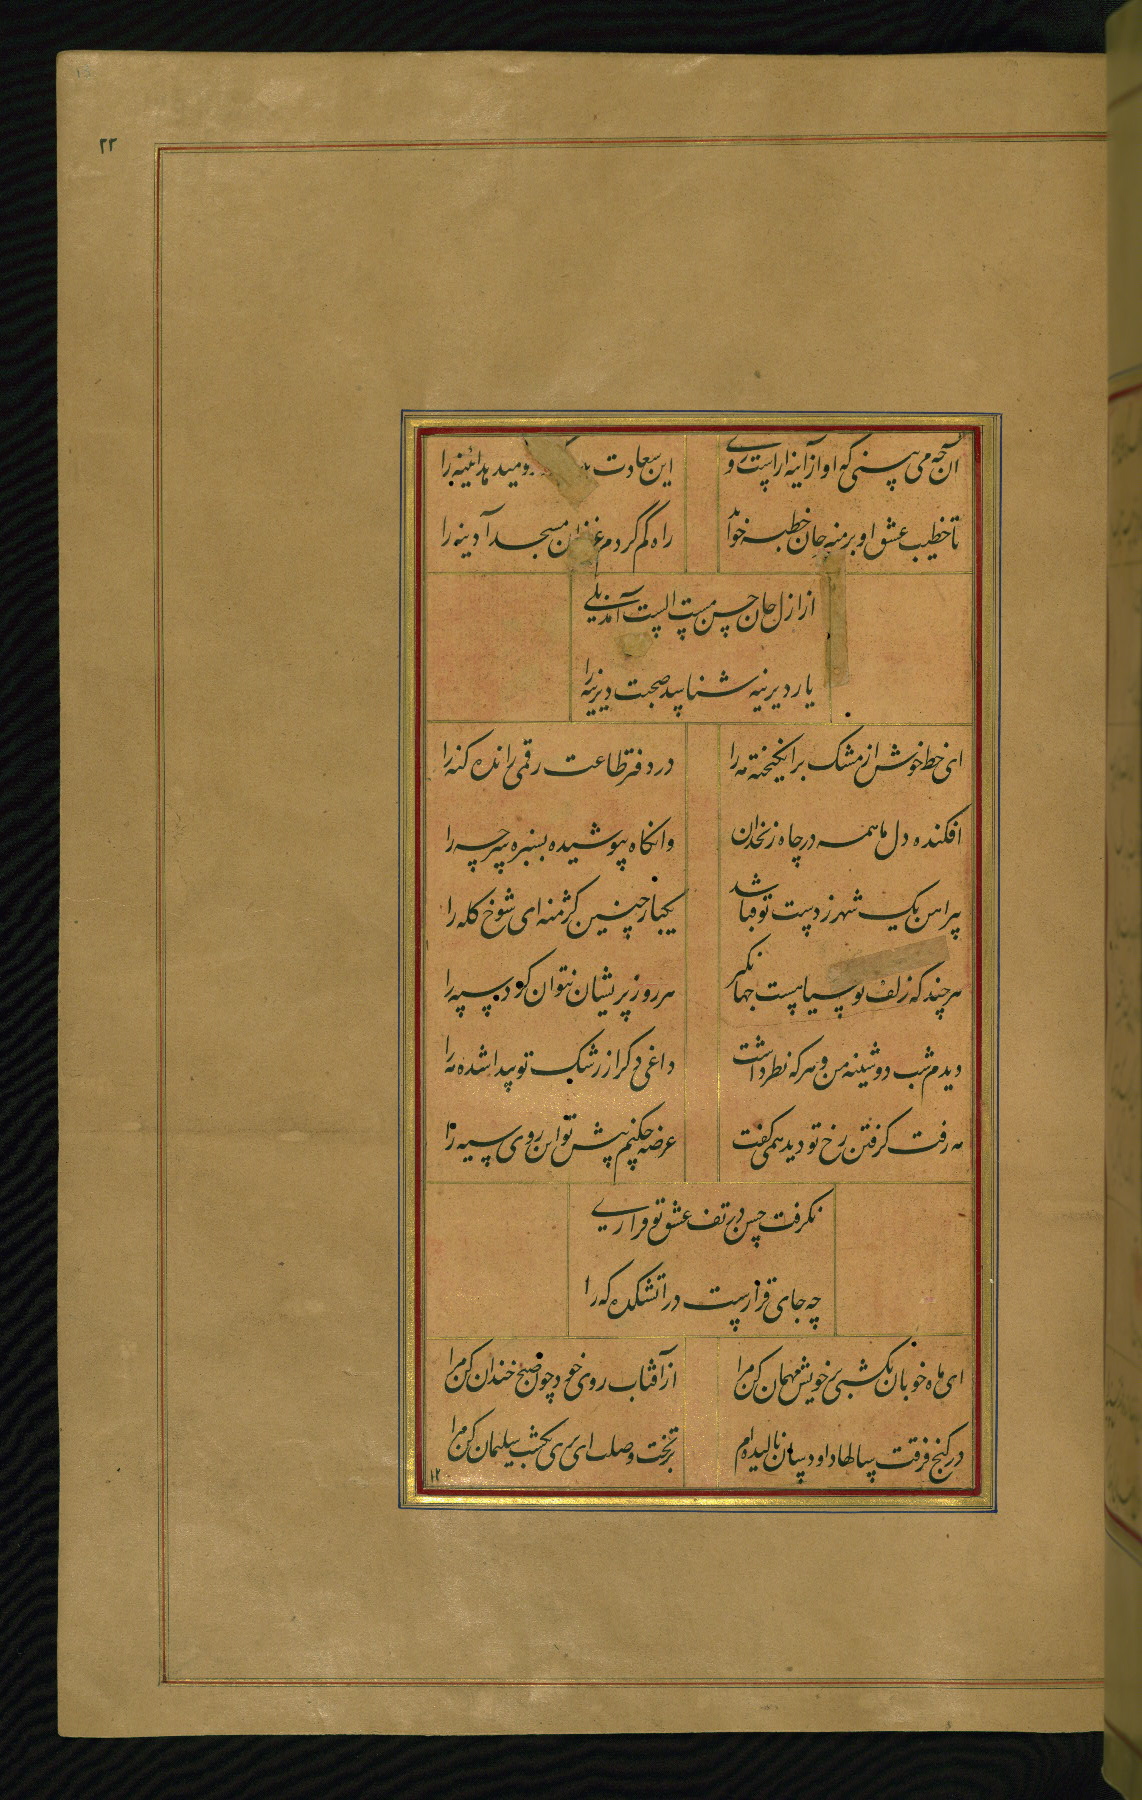 ۲۲
آن چه می بینی که او از آینه آراست روی
این سعادت بومید هدآئینه را
تا خطیب عشق او بر منبر جان خطبه خواند
راه گم کردم مسجد آدینه را
از ازل جان حسن مست الست آمد بلی
یار دیرینه شناسد صحبت دیرینه را
ای خط خوش از مشک برانگیخته مه را
در دفتر طاعت رقمی رانده گنه را
افکنده دل ما همه در چاه زنخدان
وانگاه بپوشیده بسبزه سر چه را
پیراهن یک شهر ز دست تو قبا شد
یکبار چنین کژ منه ای شوخ کله را
هر چند که زلف تو سیاهست جهانگیر
هر روز پریشان نتوان کرد سپه را
دیدم شب دوشینه من و هر که نظر داشت
داغی دگر از رشک تو پیدا شده مه را
مه رفت گرفتن رخ تو دید همی گفت
عرضه چکنم پیش تو این روی سیه را
نگرفت حسن در تف عشق تو قراری
چه جای قرارست در آتشکده که را
ای ماه خوبان یکشبی بر خویش مهمان کن مرا
از آفتاب روی خود چون صبح خندان کن مرا
در کنج فرقت سالها داود سان نالیده ام
بر تخت وصلت ای پری یکشب سلیمان کن مرا
۱۲